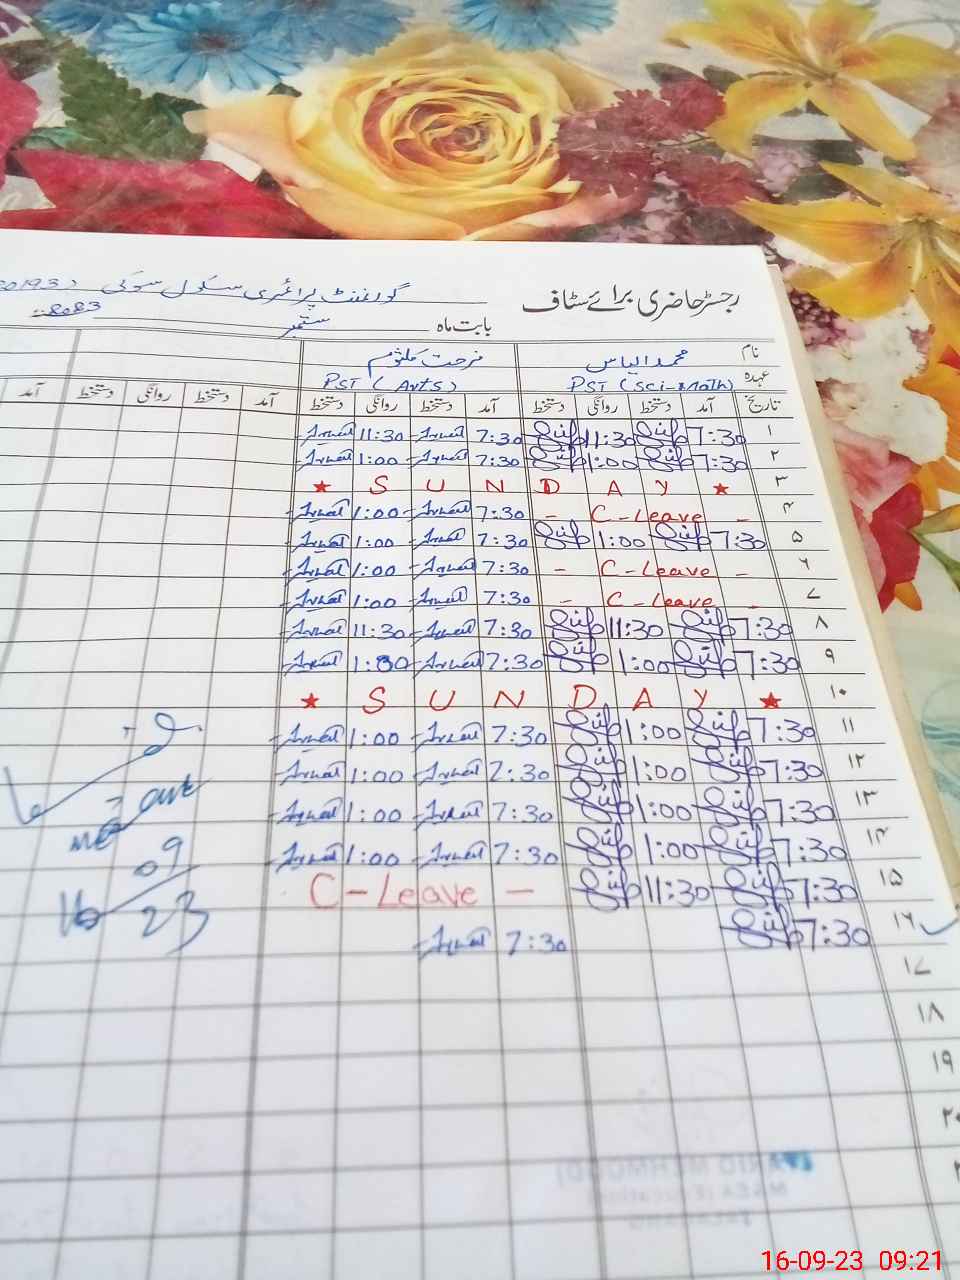 رجسٹر حاضری برائے سٹاف گورنمنٹ پرائمری سکول سوکی
بابت ماہ ستمبر
نام محمد الیاس فرحت کلثوم
عہدہ PST (Sci-Math) PST (Arts)
تاریخ آمد دستخط روانگی دستخط آمد دستخط روانگی دستخط آمد دستخط روانگی دستخط آمد
۱ 7:30 11:30 7:30 11:30
۲ 7:30 1:00 7:30 1:00
۳ ★ S U N D A Y ★
۴ - C-Leave - 7:30 1:00
۵ 7:30 1:00 7:30 1:00
۶ - C-Leave - 7:30 1:00
۷ - C-Leave - 7:30 1:00
۸ 7:30 11:30 7:30 11:30
۹ 7:30 1:00 7:30 1:00
۱۰ ★ S U N D A Y ★
۱۱ 7:30 1:00 7:30 1:00
۱۲ 7:30 1:00 7:30 1:00
۱۳ 7:30 1:00 7:30 1:00
۱۴ 7:30 1:00 7:30 1:00
۱۵ 7:30 11:30 C-Leave -
۱۶ 7:30 7:30
۱۷
۱۸
۱۹
۲۰
09
16 23
16-09-23 09:21